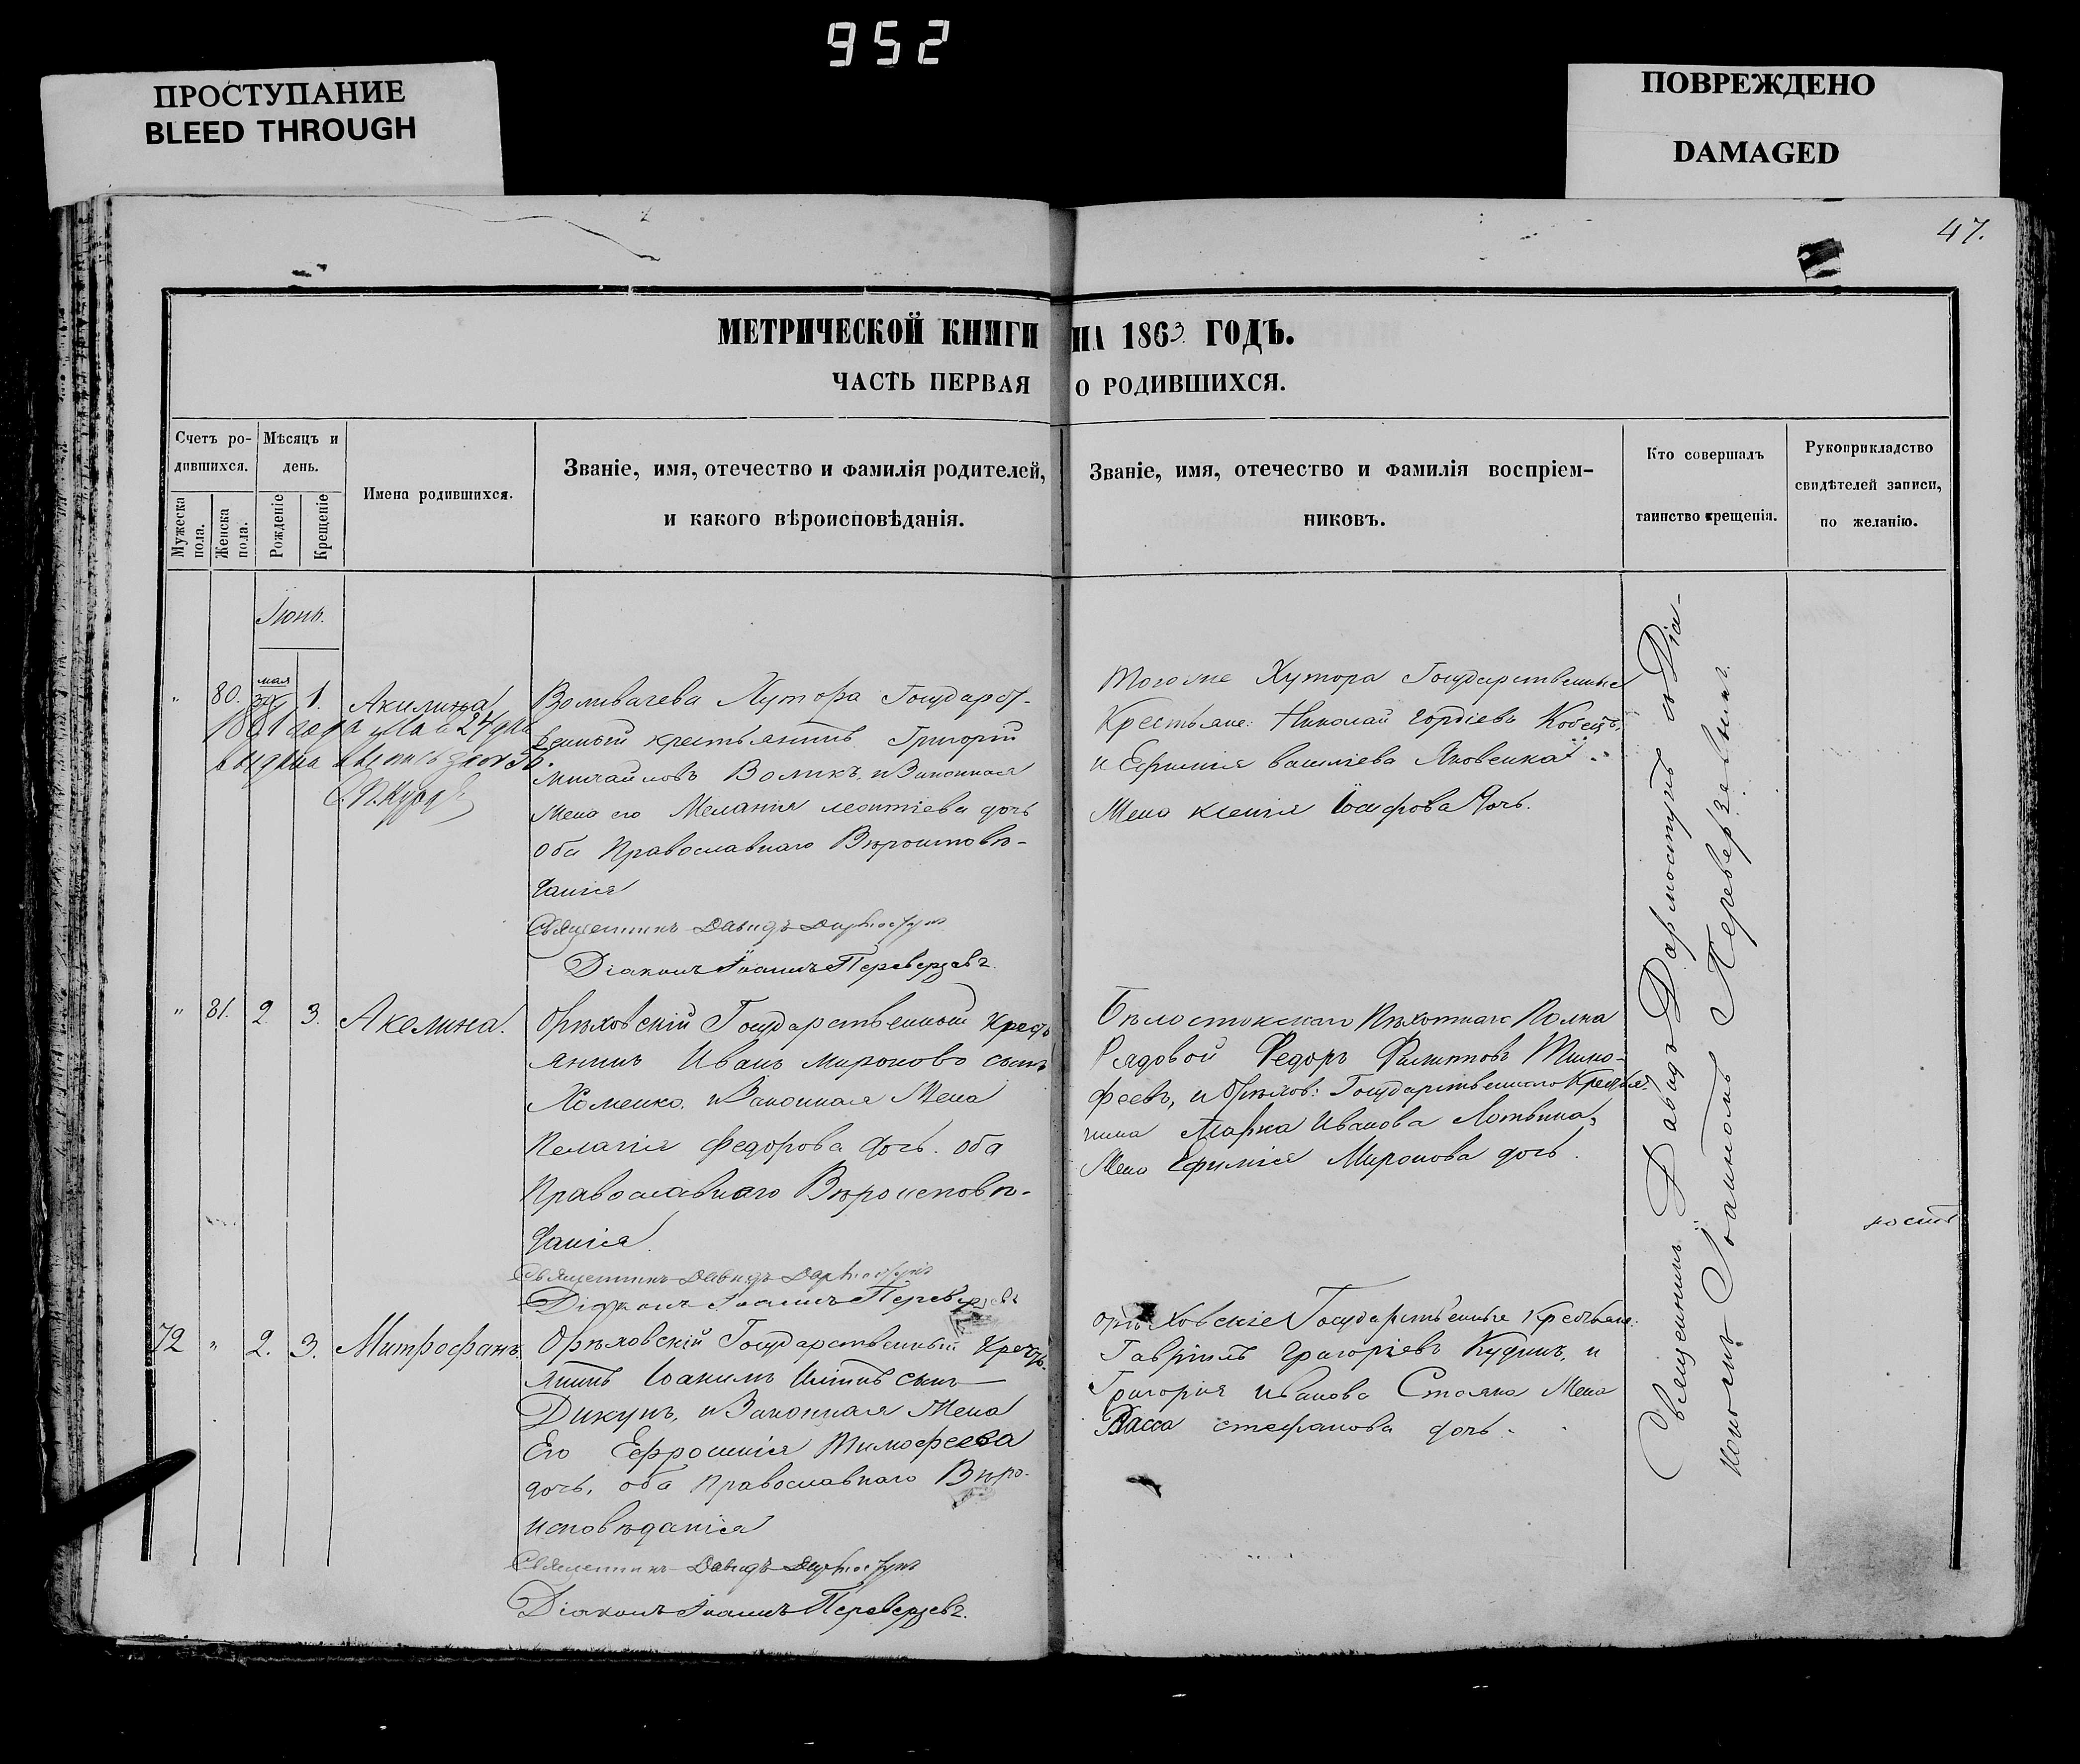 952
ПРОСТУПАНИЕ
BLEED THROUGH
ПОВРЕЖДЕНО
DAMAGED
47.
МЕТРИЧЕСКОЙ КНИГИ НА 1863 ГОДЪ.
ЧАСТЬ ПЕРВАЯ О РОДИВШИХСЯ.
Счетъ ро-
дившихся.
Мужеска
пола.
Женска
пола.
Мѣсяцъ и
день.
Рожденіе
Крещеніе
Имена родившихся.
Званіе, имя, отечество и фамилія родителей,
и какого вѣроисповѣданія.
Званіе, имя, отечество и фамилія воспріем-
никовъ.
Кто совершалъ
таинство крещенія.
Рукоприкладство
свидѣтелей записи,
по желанію.
Іюнь.
мая
" 80. 1. Акилина
1881 года Мая 24 дня
выдана
Хутора Государст-
венный крестьянинъ Григорій
Михайловъ Воликъ, и Законная
Жена его Меланія Леонтіева дочь
оба Православнаго Вѣроисповѣ-
данія
Священникъ Давидъ Дармоступъ
Діаконъ Іоаннъ Переверзевъ
Тогоже Хутора Государственные
Крестьяне: Николай Гордіевъ Кобецъ,
и Ефимія Васильева Яковенка
Жена Ксенія Іосифова дочь.
" 81. 2 3. Акелина.
Орѣховскій Государственный Кресть
янинъ Иванъ Мироновъ сынъ
Хоменко, и Законная Жена
Пелагія Федорова дочь. оба
Православнаго Вѣроисповѣ-
данія.
Священникъ Давидъ Дармоступъ
Діаконъ Іоаннъ Переверзевъ
Бѣлостокскаго Пѣхотнаго Полка
Рядовой Федоръ Филиповъ Тимо-
феевъ, и Орѣхов: Государственнаго Крестья-
нина Марка Иванова Литвина,
Жена Ефимія Миронова дочь.
72 " 2. 3. Митрофанъ.
Орѣховскій Государственный Кресть-
янинъ Іоакимъ сынъ
Дикунъ, и Законная Жена
Его Ефросинія Тимофеева
дочь, оба Православнаго Вѣро-
исповѣданія
Священникъ Давидъ Дармоступъ
Діаконъ Іоаннъ Переверзевъ.
Орѣховскіе Государственные Крестьяне:
Гавріилъ Григоріевъ Кудинъ, и
Григорія Иванова Стояна Жена
Васса Стефанова дочь.
Священникъ Давидъ Дармоступъ съ Діа-
кономъ Іоанномъ Переверзевымъ.